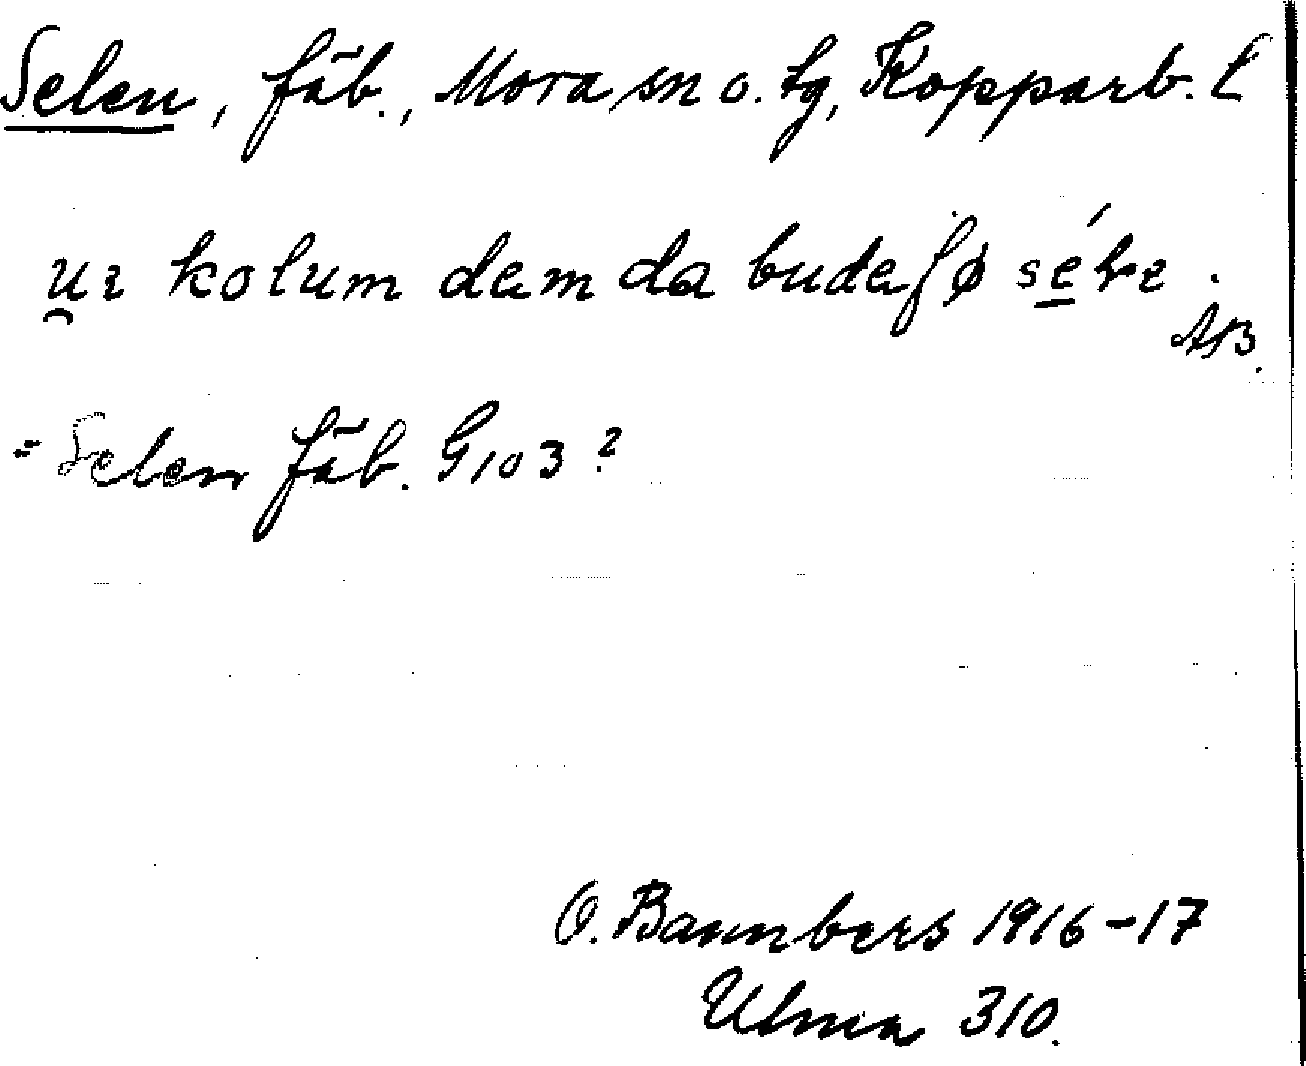 Selen, fäb., Mora sn o. tg, Kopparb. l
ur kolum dem da budaſø
= Selen fäb. G103?
O. Bannbers 1916-17
Ulma 310.